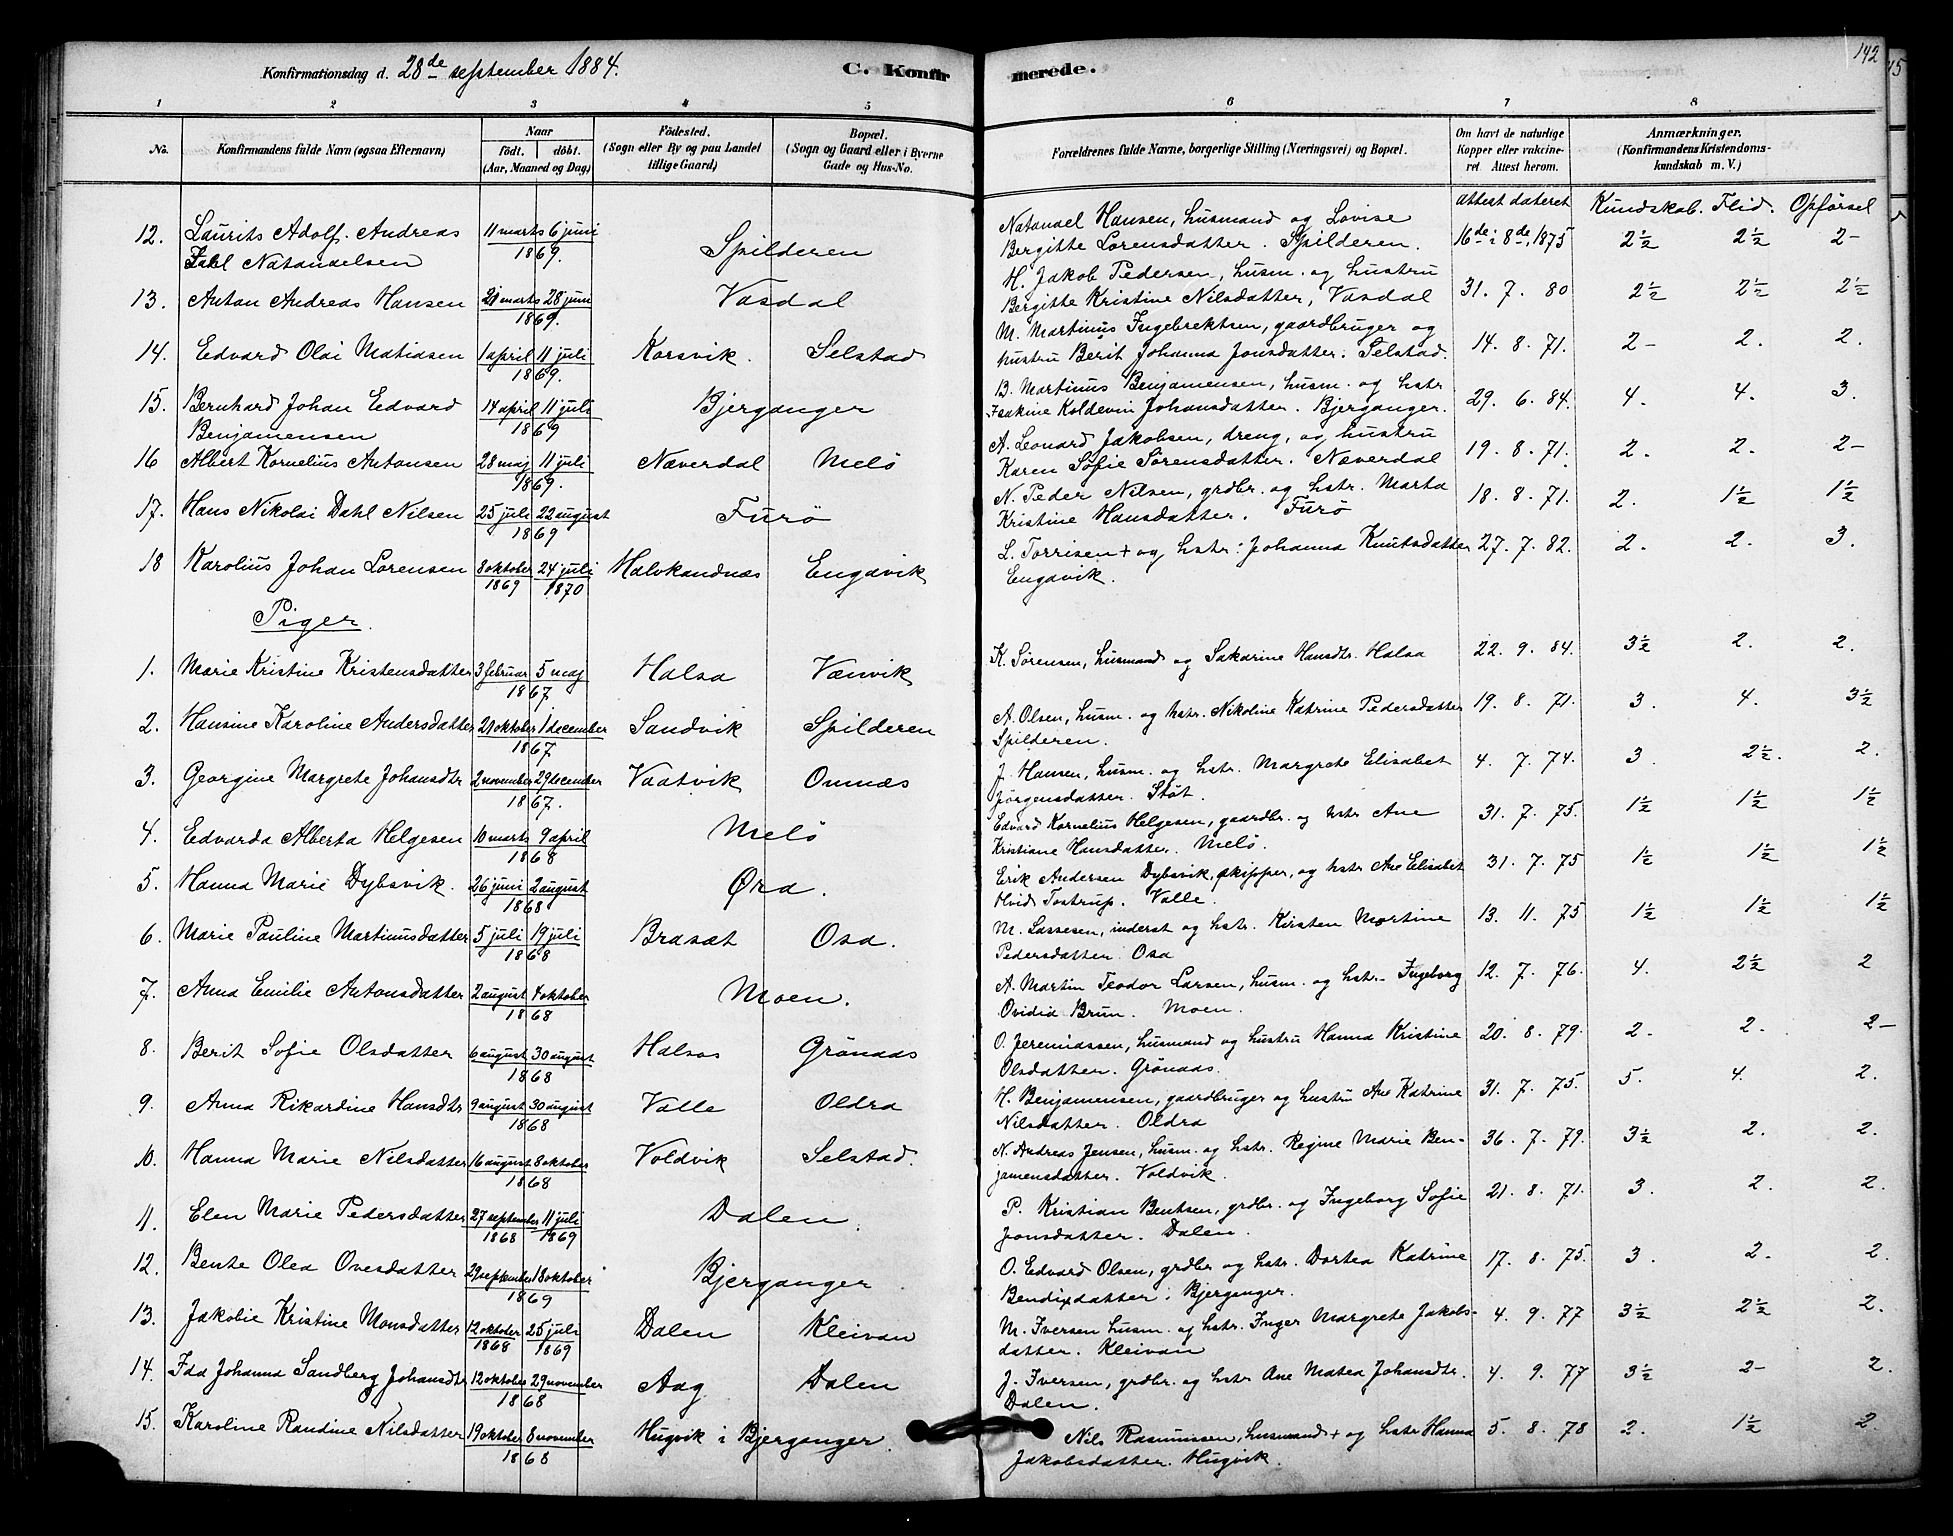 142
Konfirmationsdag d. 28de september 1884.
C. Konfirmerede.
1 2 3 4 5 6 7 8
No.
Konfirmandens fulde Navn (ogsaa Efternavn)
Naar
födt. döbt.
(Aar, Maaned og Dag)
Födested.
(Sogn eller By og paa Landet
tillige Gaard)
Bopæl.
(Sogn og Gaard eller i Byerne
Gade og Hus-No.
Forældrenes fulde Navne, borgerlige Stilling (Næringsvei) og Bopæl.
Om havt de naturlige
Kopper eller vakcine-
ret Attest herom.
Anmærkninger.
(Konfirmandens Kristendoms-
kundskab m. V.)
attest dateret Kundskab. Flid. Opförsel
12. Laurits Adolf Andreas 11 marts 6 juni Spilderen Natanael Hansen, husmand og Lovise
Natanaelsen 1869. Bergitte Lorensdatter. Spilderen. 16de i 8de, 1875 2½ 2½ 2-
13. Anton Andreas Hansen 21 marts 28 juni Vasdal H. Jakob Pedersen, husm. og hustru
1869. Bergitte Kristine Nilsdatter, Vasdal 31. 7. 80 2½ 2½ 2½
14. Edvard Olai Matiasen 1 april 11 juli Korsvik. Selstad M. Martinus Ingebrektsen, gaardbruger og
1869. hustru Berit Johanna Jonsdatter. Selstad. 14. 8. 71. 2- 2. 2.
15. Bernhard Johan Edvard 14 april 11 juli Bjerganger B. Martinus Benjamensen, husm. og hstr
Benjamensen 1869 Isakine Koldevin Johansdatter. Bjerganger. 29. 6. 84. 4. 4. 3.
16 Albert Kornelius Antonsen 28 maj 11 juli Næverdal Melö A. Leonard Jakobsen, dreng, og hustru
1869. Karen Sofie Sörensdatter. Næverdal 19. 8. 71. 2. 2. 2-
17. Hans Nikolai Dahl Nilsen 25 juli 22 august Furö N. Peder Nilsen, grdbr. og hstr. Marta
1869 Kristine Hansdatter. Furö 18. 8. 71. 2. 1½ 1½
18 Karolius Johan Lorensen 8 oktober 24 juli Halvkandnæs Engavik L. Torrisen + og hstr: Johanna Knutsdatter 27. 7. 82. 2. 2. 3.
1869 1870 Engavik.
Piger.
1. Marie Kristine Kristensdatter 3 februar 5 maj Halsa Vænvik K. Sörensen, husmand og Sakarine Hansdtr. Halsa 22. 9. 84. 3½ 2. 2.
1867
2. Hansine Karoline Andersdatter 21 oktober 1 december Sandvik Spilderen A. Olsen, husm. og hstr. Nikoline Katrine Pedersdatter 19. 8. 71. 3. 4. 3½
1867 Spilderen.
3. Georgine Margrete Johansdtr 2 november 29 december Vaatvik Onnæs J. Hansen, husm. og hstr. Margrete Elisabet 4. 7. 74. 3. 2½. 2.
1867. Jörgensdatter. Stöt.
4. Edvarda Alberta Helgesen 10 marts 9 april Melö Edvard Kornelius Helgesen, gaardbr. og hstr Ane 31. 7. 75. 1½ 1½ 1½
1868 Kristiane Hansdatter. Melö.
5. Hanna Marie Dybsvik. 26 juni 2 august Øra. Erik Andersen Dybsvik, skipper, og hstr Ane Elisabet 31. 7. 75 1½ 1½ 1½
1868 Hvid Tostrup. Valle.
6. Marie Pauline Martinusdatter 5 juli 19 juli Brasæt Osa. M. Lassesen, inderst og hstr. Kirsten Martine 13. 11. 75 1½ 1½ 1½
1868 Pedersdatter. Osa
7. Anna Emilie Antonsdatter 2 august 4 oktober Moen. A. Martin Teodor Larsen, husm. og hstr. Ingeborg 12. 7. 76. 4. 2½ 2
1868 Ovidia Brun. Moen.
8. Berit Sofie Olsdatter 6 august 30 august Halsos Grönaas O. Jeremiassen, husmand og hustru Hanna Kristine 20. 8. 79. 2. 2. 2-
1868 Olsdatter. Grönaas.
9. Anna Rikardine Hansdtr 9 august 30 august Valle Oldra H. Benjamensen, gaardbruger og hustru Ane Katrine 31. 7. 75. 5. 4. 2.
1868 Nilsdatter. Oldra
10. Hanna Marie Nilsdatter 16 august 8 oktober Voldvik Selstad. N. Andreas Jensen, husm. og hstr. Regine Marie Ben- 36. 7. 79. 3½ 2. 2.
1868 jamensdatter. Voldvik.
11. Elen Marie Pedersdatter 27 september 11 juli Dalen. P. Kristian Bentsen, grdbr. og Ingeborg Sofie 21. 8. 71. 3. 2. 2.
1868 1869 Jonsdatter. Dalen.
12. Bente Olea Ovesdatter 29 september 18 oktober Bjerganger O. Edvard Olsen, grdbr og hstr. Dortea Katrine 17. 8. 75. 3. 2. 2.
1869 Bendixdatter. Bjerganger.
13. Jakobie Kristine Monsdatter 12 oktober 25 juli Dalen Kleivan M. Iversen husm. og hstr. Inger Margrete Jakobs- 4. 9. 77 3½ 2½ 2.
1868 1869 datter. Kleivan
14. Ida Johanna Sandberg Johansdtr 12 oktober 29 november Aag Dalen J. Iversen, grdbr. og hstr Ane Matea Johansdtr. 4. 9. 77 3½ 2- 2.
1868 Dalen.
15. Karoline Randine Nilsdatter 19 oktober 8 november Hugvik i Bjerganger. Nils Rasmussen, husmand + og hstr Hanna 5. 8. 78 2. 1½ 2.
1868 Jakobsdatter. Hugvik.